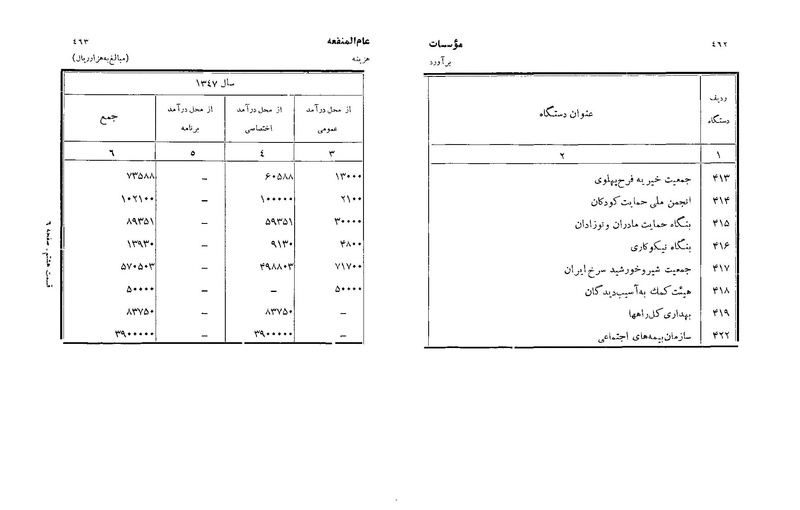 ۴۶۲
مؤسسات
برآورد
ردیف دستگاه	عنوان دستگاه
۱	۲
۴۱۳	جمعیت خیریه فرح‌پهلوی
۴۱۴	انجمن ملی حمایت کودکان
۴۱۵	بنگاه حمایت مادران و نوزادان
۴۱۶	بنگاه نیکوکاری
۴۱۷	جمعیت شیروخورشید سرخ ایران
۴۱۸	هیئت کمك به آسیب‌دیدگان
۴۱۹	بهداری کل راهها
۴۲۲	سازمان بیمه‌های اجتماعی
عام‌المنفعه
۴۶۳
هزینه
(مبالغ به هزار ریال)
سال ۱۳۴۷
از محل درآمد عمومی	از محل درآمد اختصاصی	از محل درآمد برنامه	جمع
۳	۴	۵	۶
۱۳۰۰۰	۶۰۵۸۸	–	۷۳۵۸۸
۲۱۰۰	۱۰۰۰۰۰	–	۱۰۲۱۰۰
۳۰۰۰۰	۵۹۳۵۱	–	۸۹۳۵۱
۴۸۰۰	۹۱۳۰	–	۱۳۹۳۰
۷۱۷۰۰	۴۹۸۸۰۳	–	۵۷۰۵۰۳
۵۰۰۰۰	–	–	۵۰۰۰۰
–	۸۳۷۵۰	–	۸۳۷۵۰
–	۳۹۰۰۰۰۰	–	۳۹۰۰۰۰۰
قسمت هشتم، صفحه ۶